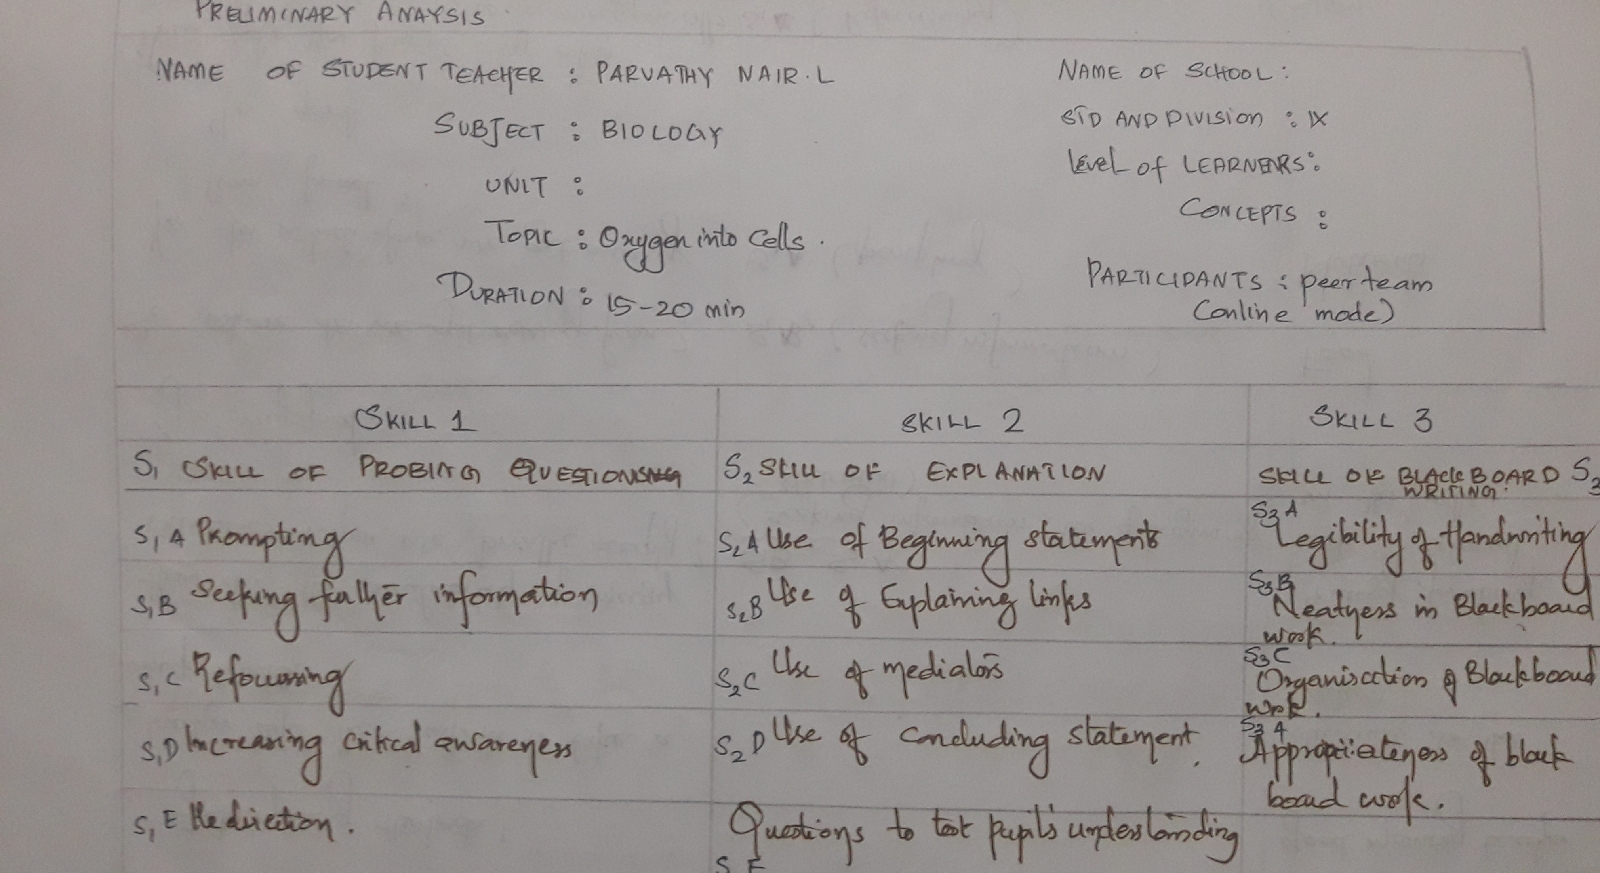 PRELIMINARY ANAYSIS
NAME OF STUDENT TEACHER : PARVATHY NAIR.L
SUBJECT : BIOLOGY
UNIT :
TOPIC : Oxygen into Cells.
DURATION : 15-20 min
NAME OF SCHOOL :
STD AND DIVISION : IX
Level of LEARNERS :
CONCEPTS :
PARTICIPANTS : peer team
(online mode)
SKILL 1
SKILL 2
SKILL 3
S1 SKILL OF PROBING QUESTIONS
S2 SKILL OF EXPLANATION
SKILL OF BLACKBOARD S3
WRITING.
S1A Prompting
S2A Use of Beginning statements
S3A
Legibility of Handwriting
S1B Seeking further information
S2B Use of Explaining links
S3B
Neatness in Blackboard
work.
S1C Refocussing
S2C Use of mediators
S3C
Organisation of Blackboard
work.
S1D Increasing critical awareness
S2D Use of concluding statement.
S3 4
Appropriateness of black
board work.
S1E Redirection.
Questions to test pupil's understanding
S E